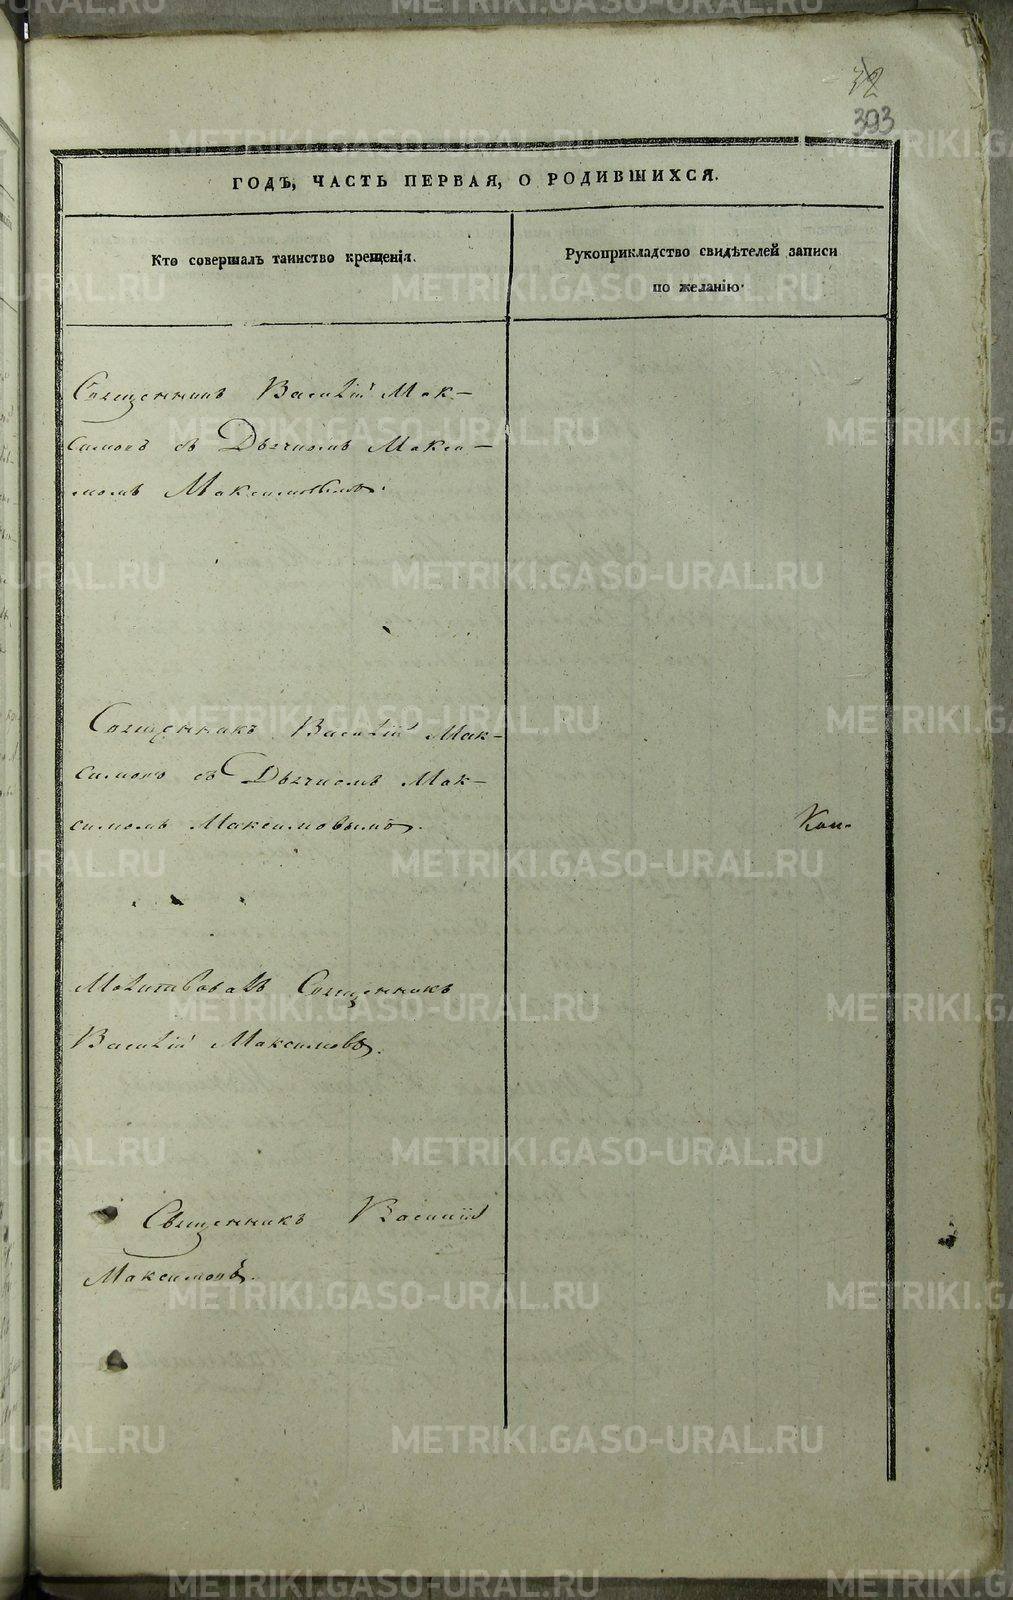 32
393
ГОДЪ, ЧАСТЬ ПЕРВАЯ, О РОДИВШИХСЯ.
Кто совершалъ таинство крещенія.
Рукоприкладство свидѣтелей записи
по желанію.
Священникъ Василій Мак-
симовъ съ Дьячкомъ Макси-
момъ Максимовымъ.
Священникъ Василій Мак-
симовъ съ Дьячкомъ Мак-
симомъ Максимовымъ.
Молитвовалъ Священникъ
Василій Максимовъ.
Священникъ Василій
Максимовъ.
METRIKI.GASO-URAL.RU